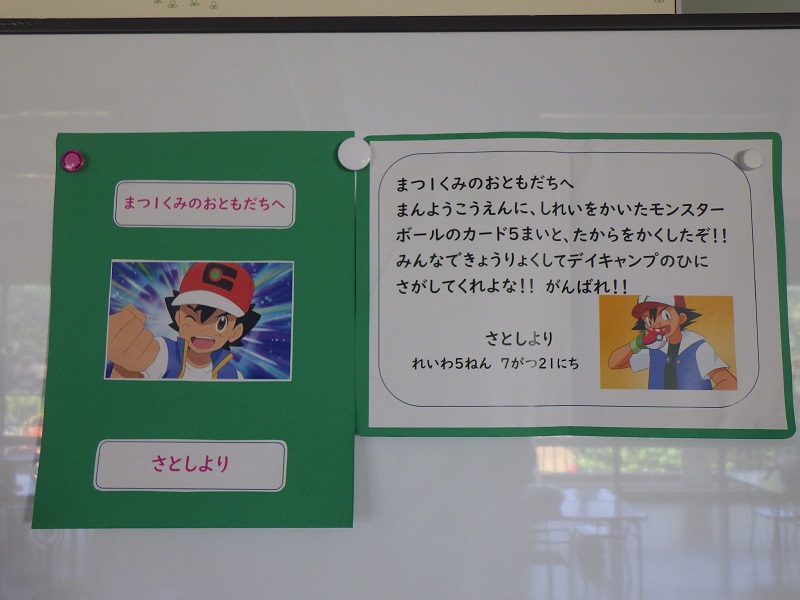 まつ1くみのおともだちへ
さとしより
まつ1くみのおともだちへ
まんようこうえんに、しれいをかいたモンスター
ボールのカード5まいと、たからをかくしたぞ!!
みんなできょうりょくしてデイキャンプのひに
さがしてくれよな!! がんばれ!!
さとしより
れいわ5ねん 7がつ21にち